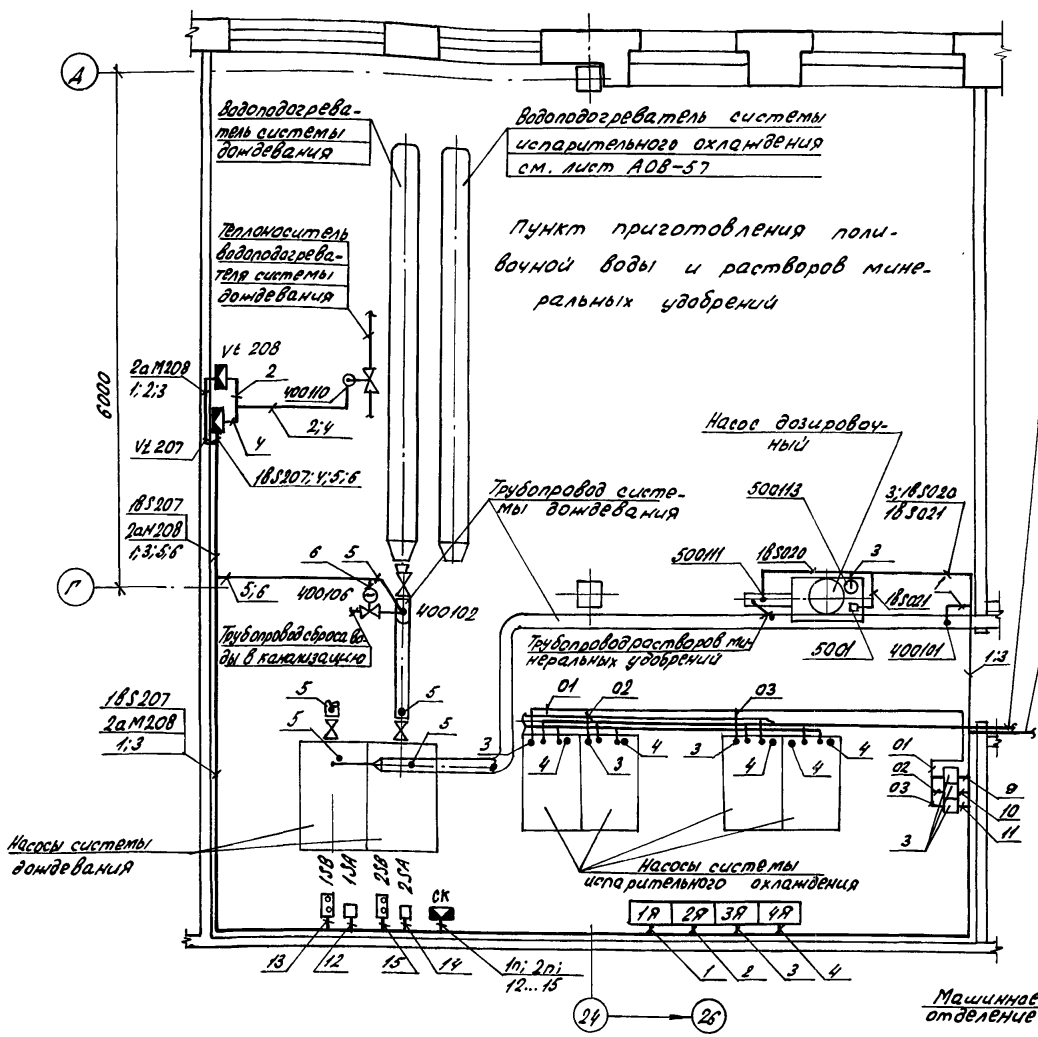 А
Водоподогрева-
тель системы
дождевания
Водоподогреватель системы
испарительного охлаждения
см. лист АОВ-57
Теплоноситель
водоподогрева-
теля системы
дождевания
Пункт приготовления поли-
вочной воды и растворов мине-
ральных удобрений
6000
Vt 208
2аМ208
1;2;3
2
400110
4
2;4
Vt 207
1вS207;4;5;6
Насос дозировоч-
ный
Трубопровод систе-
мы дождевания
500113
3;1вS020
1вS021
1вS207
2аМ208
1;3;5;6
500111
1вS020
3
6
5
Г
5;6
400106
400102
1
1вS021
Трубопровод сброса во-
ды в канализацию
Трубопровод растворов ми-
неральных удобрений
5001
400101
1;3
1вS207
2аМ208
1;3
5
5
5
5
01
02
03
3
4
3
4
3
4
4
4
2
01
02
03
9
10
11
3
Насосы системы
дождевания
Насосы системы
испарительного охлаждения
1SB
1SA
2SB
2SA
СК
1Я
2Я
3Я
4Я
13
12
15
14
1п; 2п;
12...15
1
2
3
4
24
26
Машинное
отделение